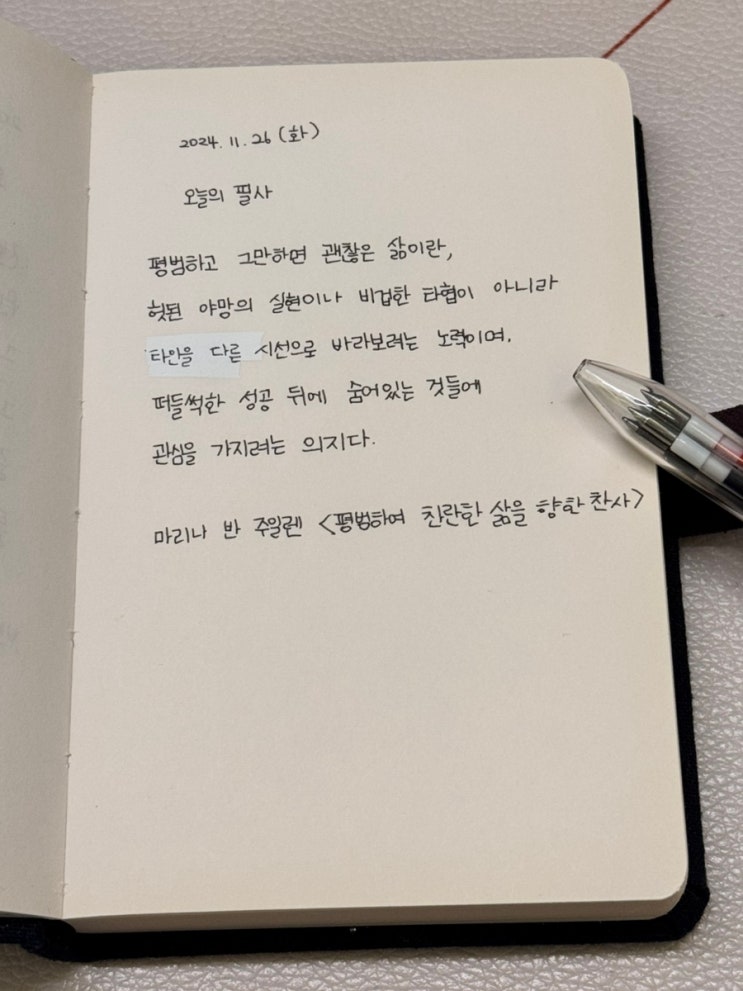 2024. 11. 26 (화)
오늘의 필사
평범하고 그만하면 괜찮은 삶이란,
헛된 야망의 실현이나 비겁한 타협이 아니라
타인을 다른 시선으로 바라보려는 노력이며,
떠들썩한 성공 뒤에 숨어있는 것들에
관심을 가지려는 의지다.
마리나 반 주일렌 <평범하여 찬란한 삶을 향한 찬사>